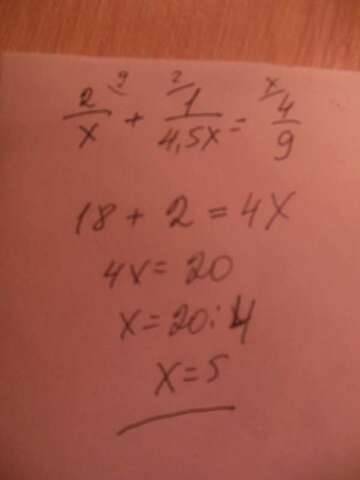 2/x ⁹⁄ + 1/4,5x ²⁄ = 4/9 ˣ⁄
18 + 2 = 4x
4x = 20
x = 20 : 4
x = 5